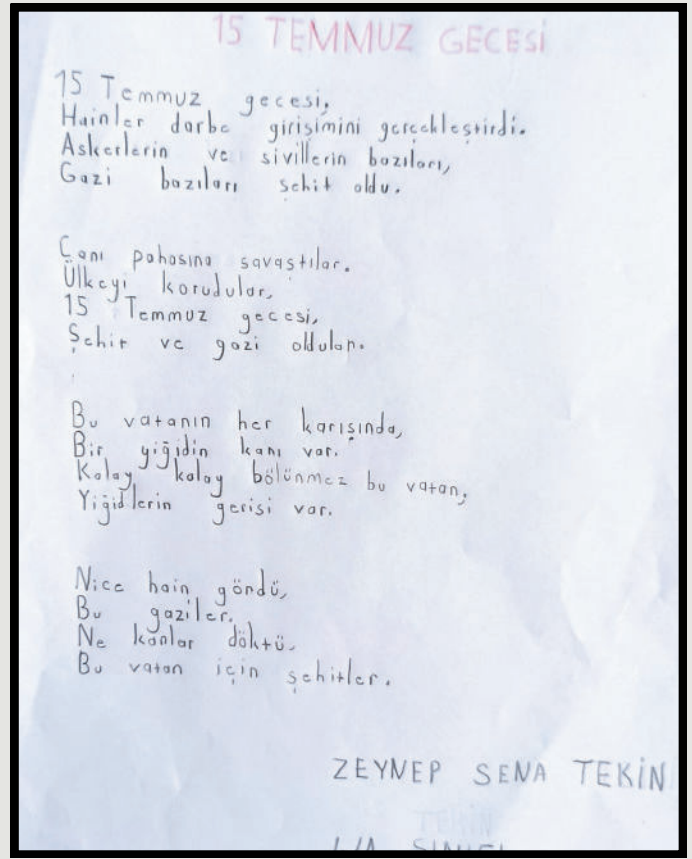 15 TEMMUZ GECESİ
15 Temmuz gecesi,
Hainler darbe girişimini gerçekleştirdi.
Askerlerin ve sivillerin bazıları,
Gazi bazıları şehit oldu.
Canı pahasına savaştılar.
Ülkeyi korudular,
15 Temmuz gecesi,
Şehit ve gazi oldular.
Bu vatanın her karışında,
Bir yiğidin kanı var.
Kolay kolay bölünmez bu vatan,
Yiğidlerin gerisi var.
Nice hain göndü,
Bu gaziler.
Ne kanlar döktü,
Bu vatan için şehitler.
ZEYNEP SENA TEKİN
TEKİN